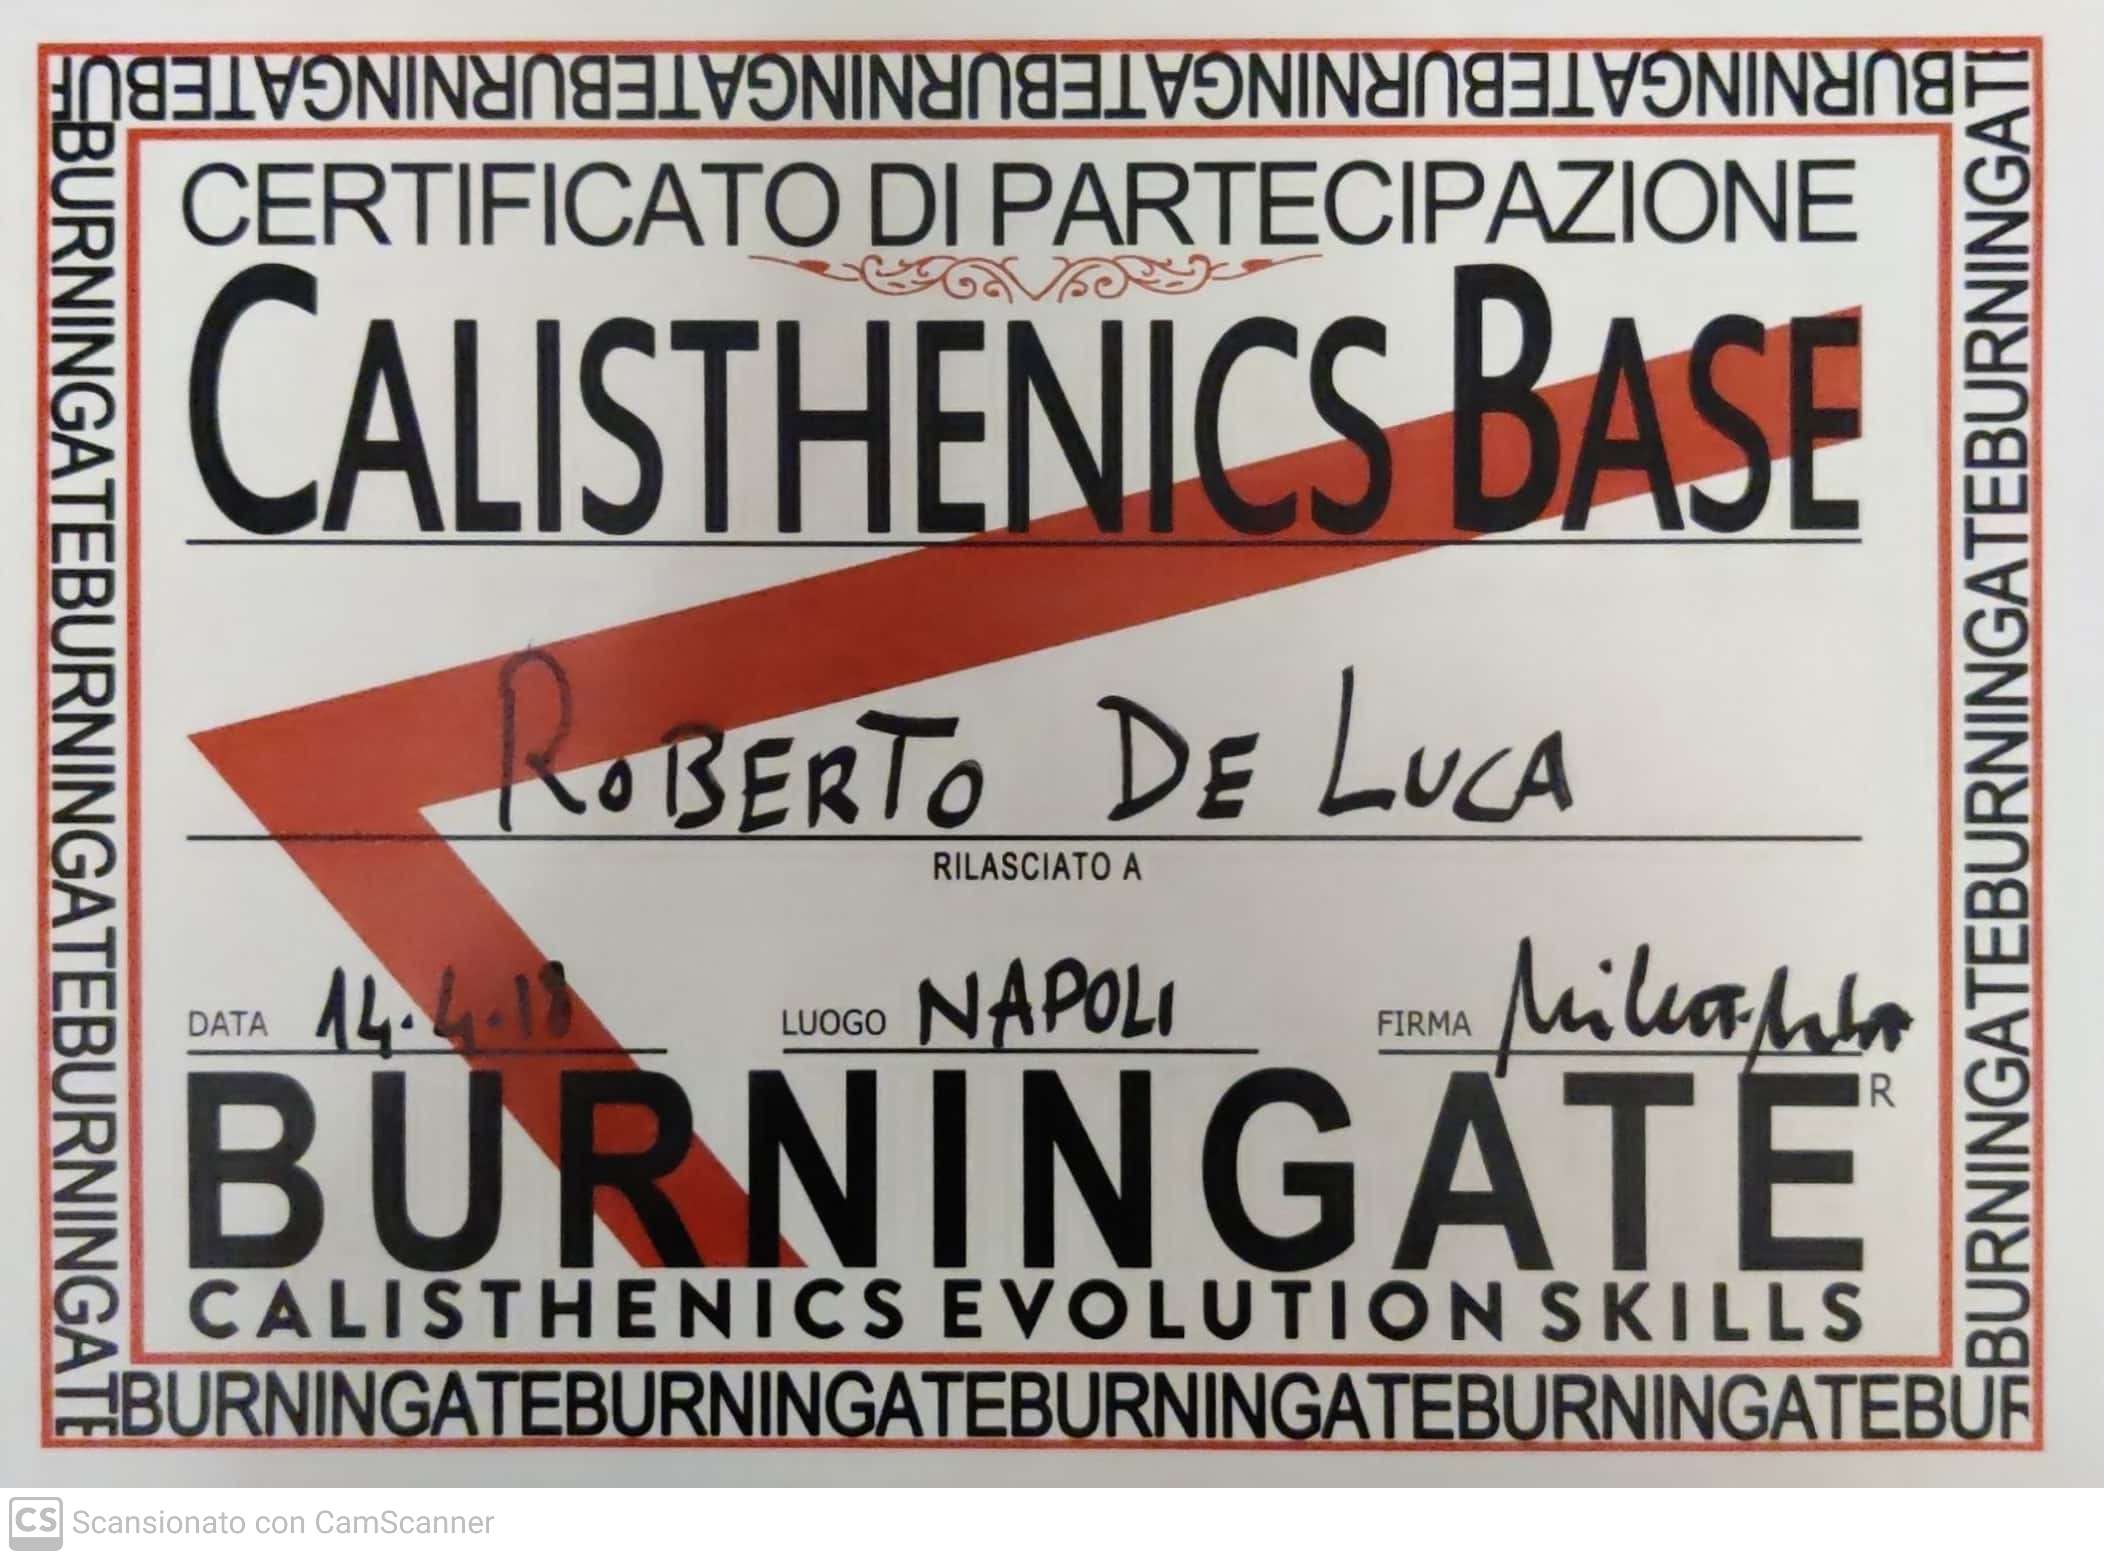 BURNINGATEBURNINGATEBURNINGATEBURNINGATEBUR
CERTIFICATO DI PARTECIPAZIONE
CALISTHENICS BASE
ROBERTO DE LUCA
RILASCIATO A
DATA 14.4.18 LUOGO NAPOLI FIRMA
BURNINGATE R
CALISTHENICS EVOLUTION SKILLS
BURNINGATEBURNINGATEBURNINGATE
BURNINGATEBURNINGATEBURNINGATE
BURNINGATEBURNINGATEBURNINGATEBURNINGATEBUR
CS Scansionato con CamScanner